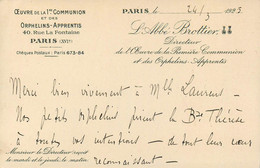 ŒUVRE DE LA 1re COMMUNION
ET DES
ORPHELINS-APPRENTIS
40, Rue La Fontaine
PARIS (XVIe)
Chèques Postaux : Paris 673-84
PARIS, le 24/3 1925
L'Abbé Brottier
Directeur
de l'Œuvre de la Première Communion
et des Orphelins Apprentis
Merci bien vivement à Mlle Laurent -
Nos petits orphelins prient la Bse Thérèse
à toutes vos intentions - de tout leur cœur
Monsieur le Directeur reçoit
le mardi et le jeudi, le matin
reconnaissant -